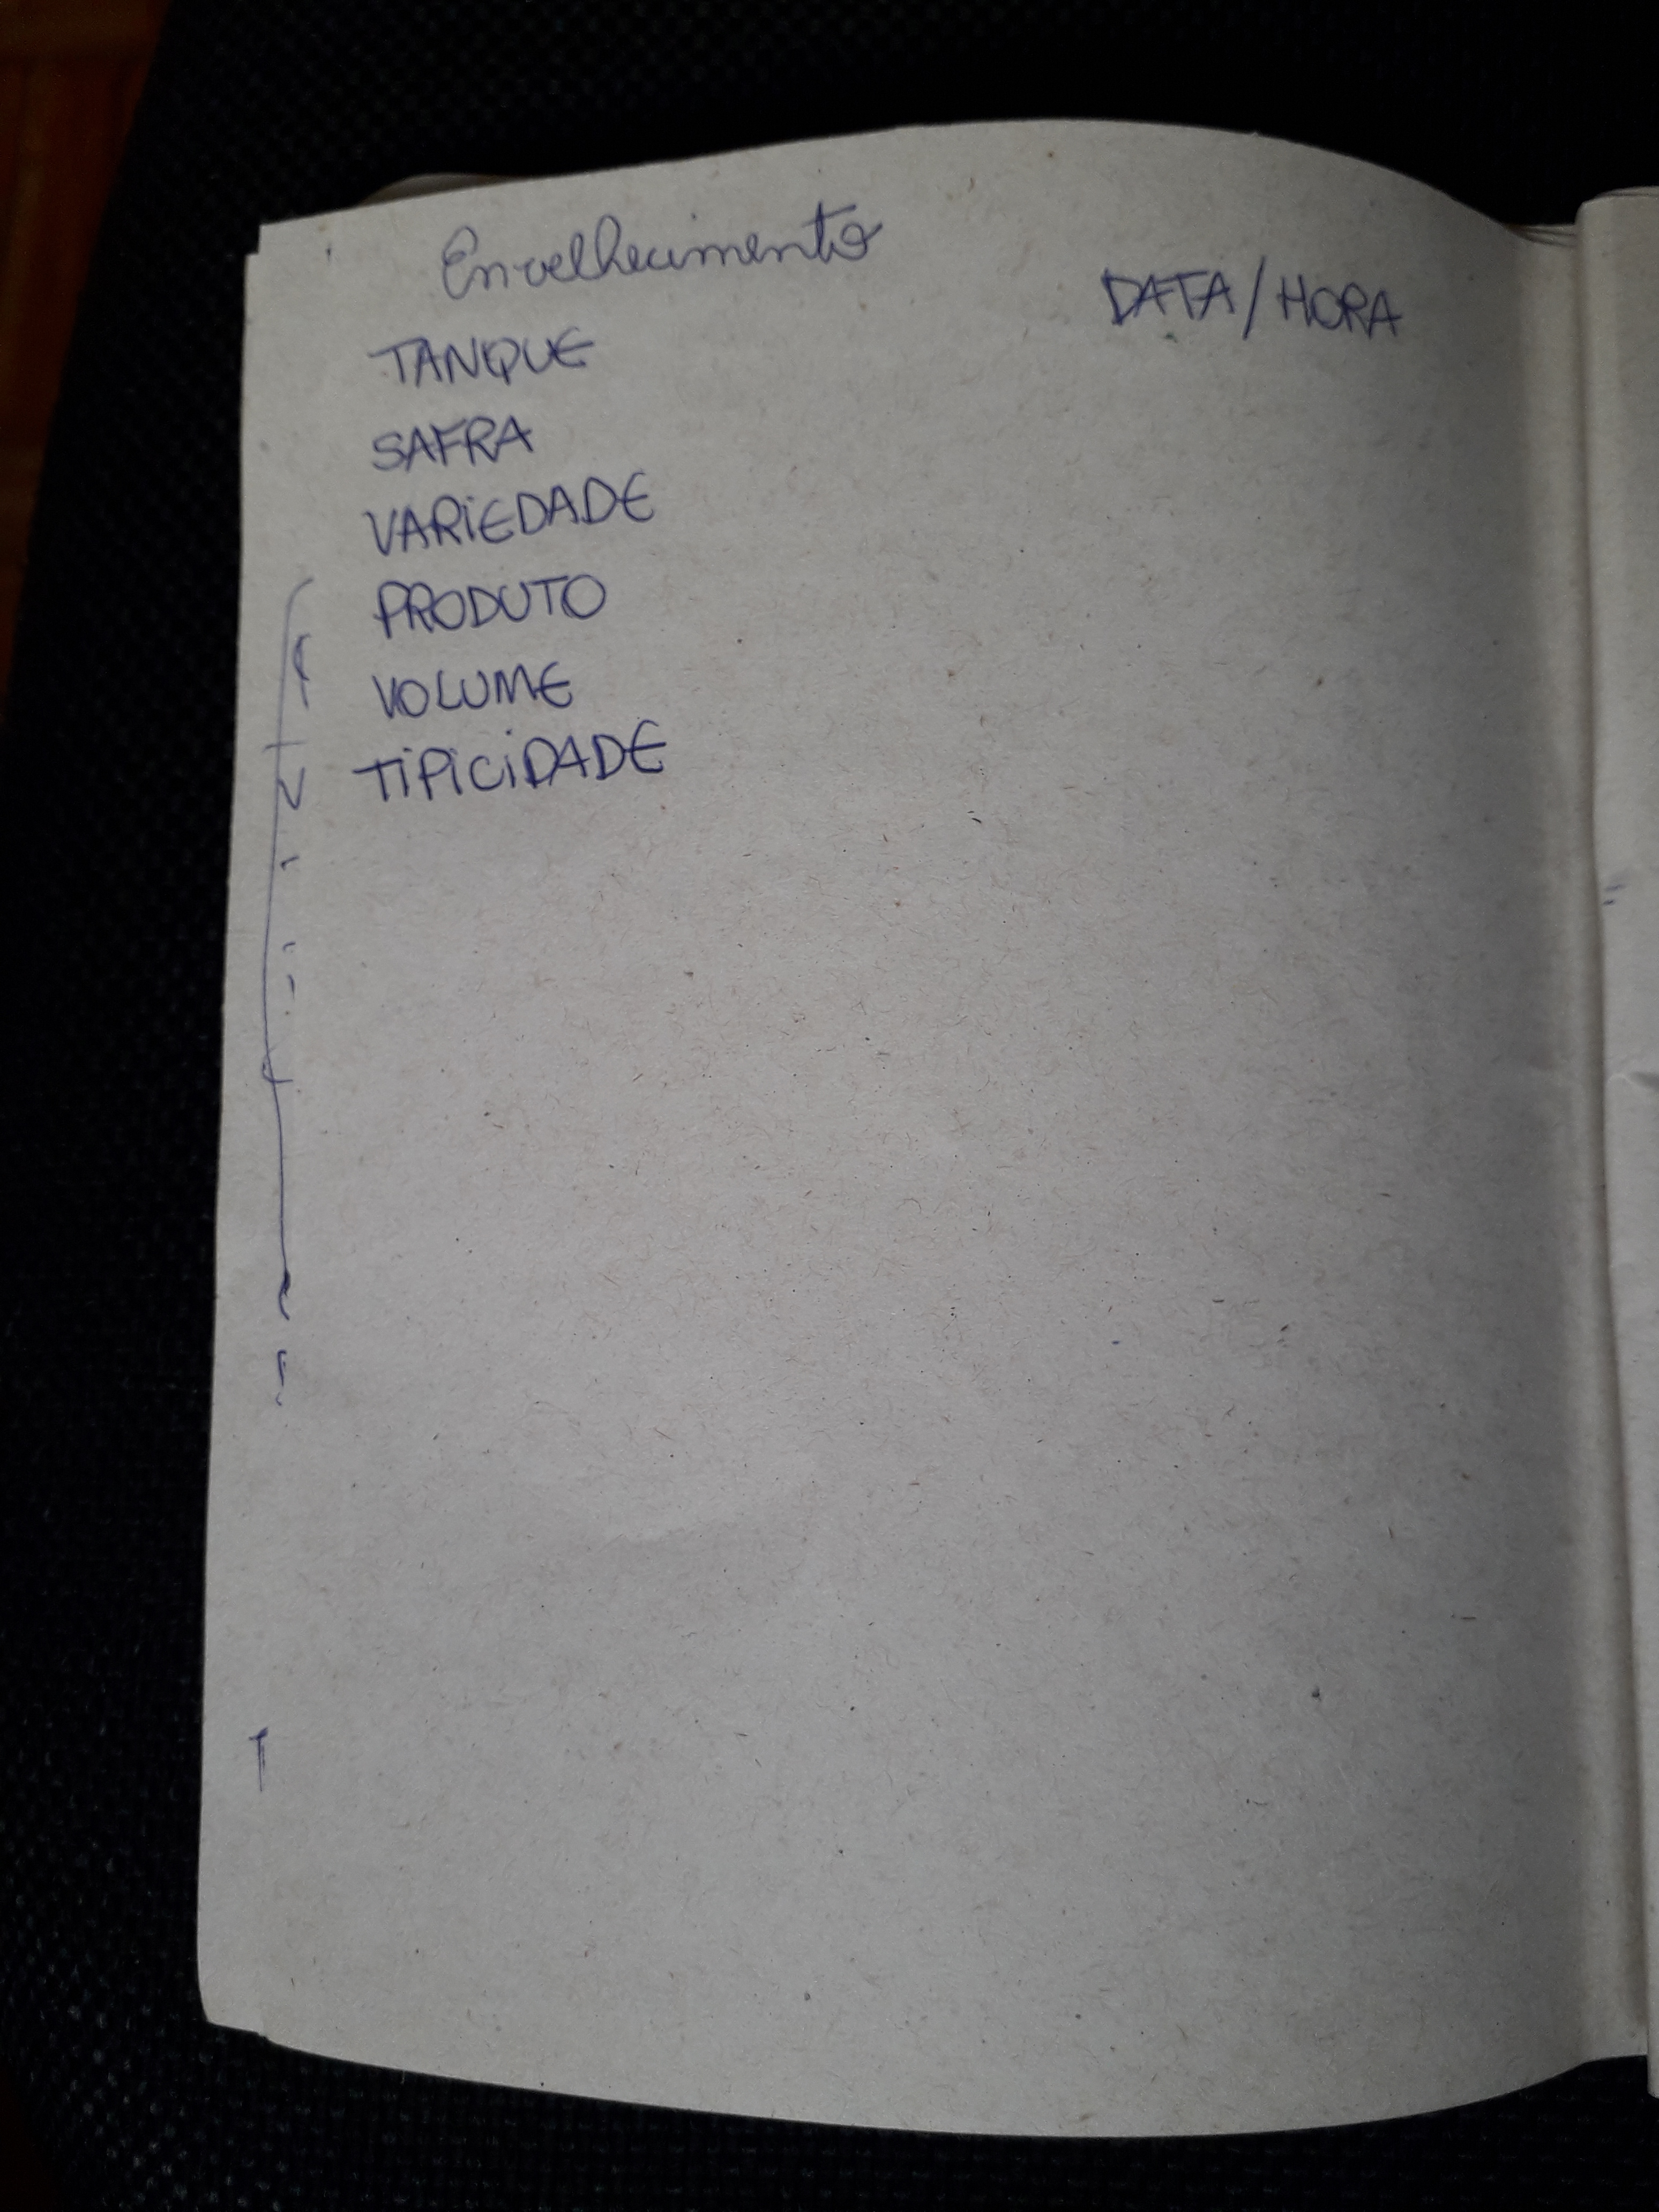 Envelhecimento
DATA/HORA
TANQUE
SAFRA
VARIEDADE
PRODUTO
VOLUME
TIPICIDADE